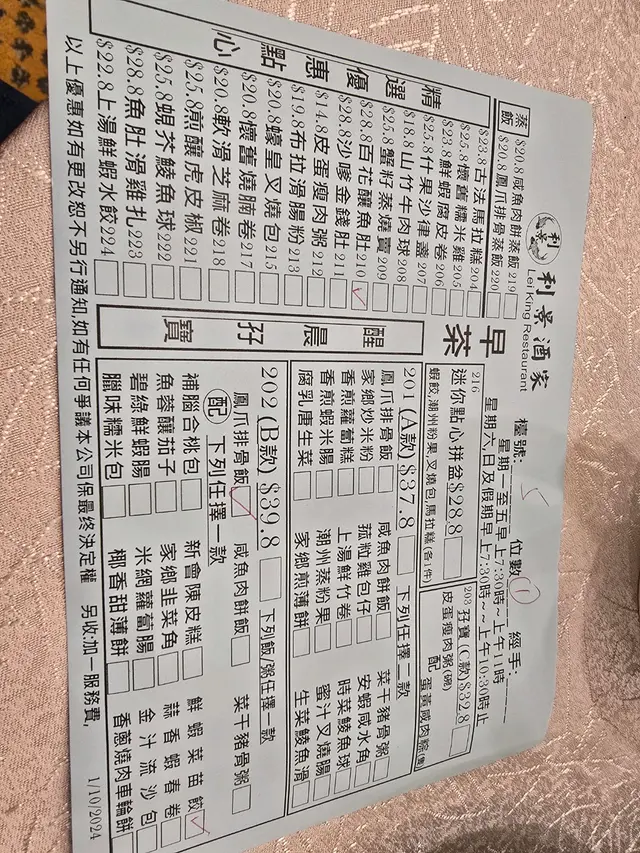 利景酒家
Lei King Restaurant
檯號: 5 位數 ① 經手:
早茶
星期一至五早上7:30時~上午11時
星期六,日及假期早上7:30時~上午10:30時止
蒸飯
$20.8 咸魚肉餅蒸飯 219
$20.8 鳳爪排骨蒸飯 220
216
迷你點心拼盆$28.8
蝦餃,潮州粉果,叉燒包,馬拉糕(各1件)
203 孖寶 (C款)$32.8
皮蛋瘦肉粥(碗) 配 蛋黃咸肉粽(隻)
精選優惠點心
$23.8 古法馬拉糕 204
$25.8 懷舊糯米雞 205
$23.8 鮮蝦腐皮卷 206
$25.8 什果沙律盞 207
$18.8 山竹牛肉球 208
$25.8 蟹籽蒸燒賣 209
$28.8 百花釀魚肚 210
$28.8 沙爹金錢肚 211
$14.8 皮蛋瘦肉粥 212
$19.8 布拉滑腸粉 213
$20.8 蠔皇叉燒包 215
$20.8 懷舊燒腩卷 217
$20.8 軟滑芝麻卷 218
$25.8 煎釀虎皮椒 221
$25.8 蜆芥鯪魚球 222
$28.8 魚肚滑雞扎 223
$22.8 上湯鮮蝦水餃 224
醒晨孖寶
201 (A款) $37.8 下列任擇二款
鳳爪排骨飯 咸魚肉餅飯 菜干豬骨粥
家鄉炒米粉 菰粒雞包仔 安蝦咸水角
香煎蘿蔔糕 上湯鮮竹卷 時菜鯪魚球
香煎蝦米腸 潮州蒸粉果 蜜汁叉燒腸
腐乳唐生菜 家鄉煎薄餅 生菜鯪魚滑
202 (B款) $39.8 下列飯/粥任擇一款
鳳爪排骨飯 咸魚肉餅飯 菜干豬骨粥
配 下列任擇一款
補腦合桃包 新會陳皮糕 鮮蝦菜苗餃
魚蓉釀茄子 家鄉韭菜角 蒜香蝦春卷
碧綠鮮蝦腸 米網蘿蔔腸 金汁流沙包
臘味糯米包 椰香甜薄餅 香蔥燒肉車輪餅
以上優惠如有更改恕不另行通知,如有任何爭議本公司保最終決定權 另收加一服務費,
1/10/2024